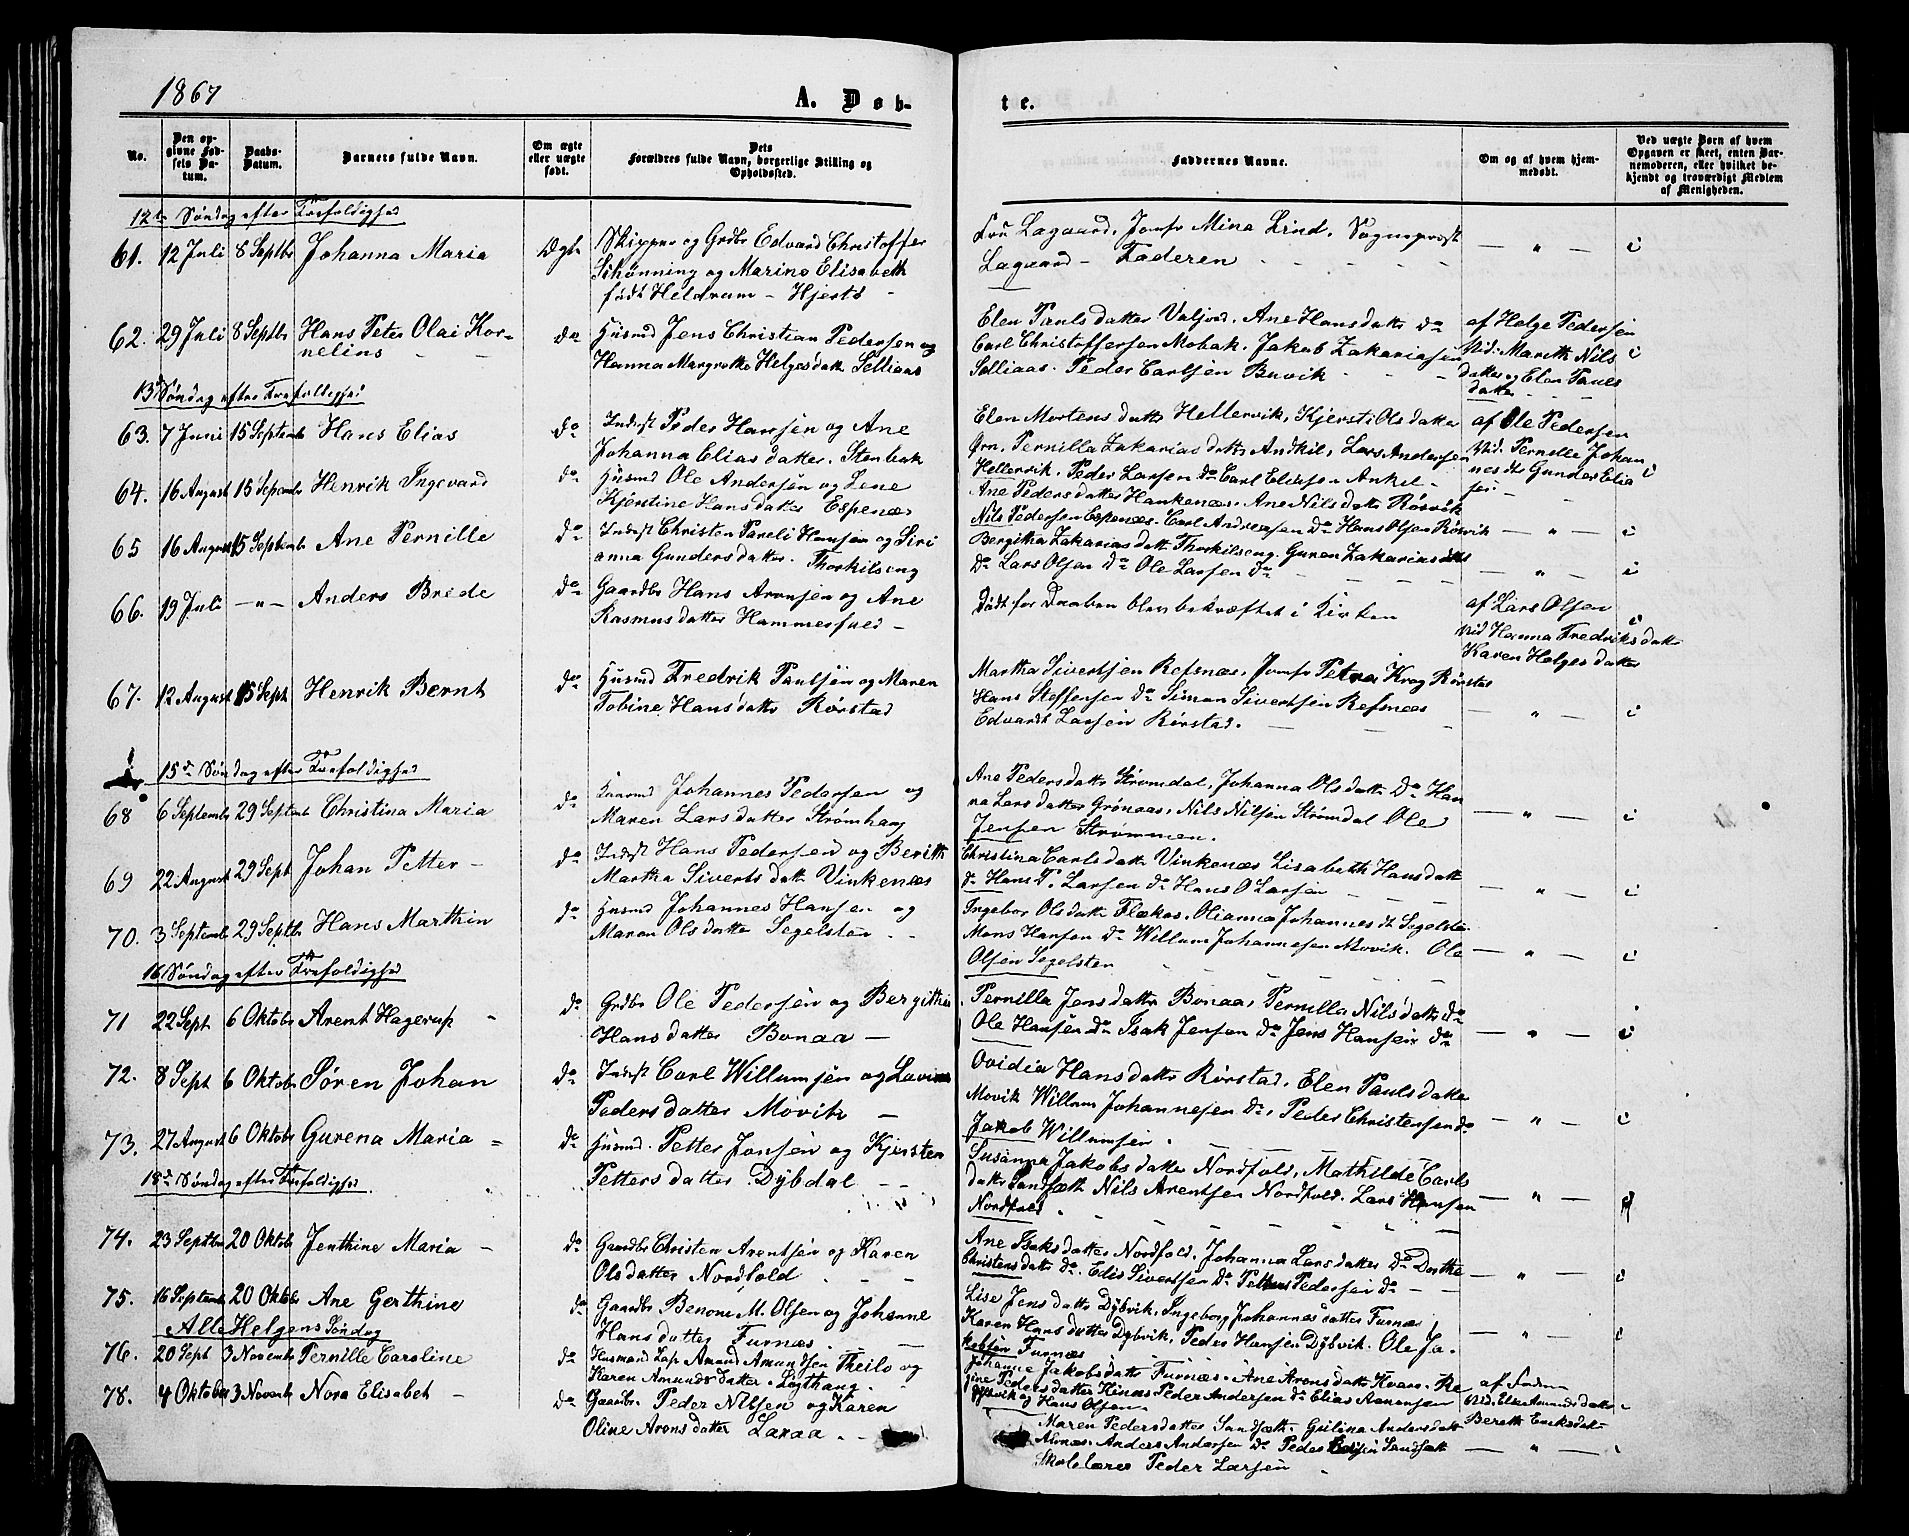 1867
A. Døb-
te.
No.
Den op-
givne Fød-
sels Da-
tum.
Daabs-
Datum.
Barnets fulde Navn.
Om ægte
eller uægte
født.
Dets
Forældres fulde Navn, borgerlige Stilling og
Opholdssted.
Faddernes Navne.
Om og af hvem hjem-
medøbt.
Ved uægte Børn af hvem
Opgaven er skeet, enten Bar-
nemoderen, eller hvilket be-
kjendt og troværdigt Medlem
af Menigheden.
12te Søndag efter Trefoldighed
61. 12 Juli 8 Septbr Johanna Maria Ægte Skipper og Grdbr Edvard Christoffer
Schønning og Marine Elisabeth
født Heldrum - Hjertø
Fru Lagaard, Jomfr Mina Lind, Sognepræst
Lagaard - Faderen
62. 29 Juli 8 Septbr Hans Peter Olai Kor-
nelius
do Husmd Jens Christian Pedersen og
Hanna Margrethe Helgesdatt Solliaas
Elen Paulsdatter Valjord. Ane Hansdatt do
Carl Christoffersen Mobak. Jakob Zakariasen
Solliaas. Peder Carlsen Buvik
af Helge Pedersen
Vid: Mareth Nils
datter og Elen Pauls
datter
13de Søndag efter Trefoldighed
63. 7 Juni 15 Septemb Hans Elias do Inderst Peder Hansen og Ane
Johanna Eliasdatter. Stenbak
Elen Mortensdatter Hellervik, Kjersti Olsdatter
Ørn. Pernilla Zakariasdatt Andkil, Lars Andersen
Hellervik. Peder Larsen do Carl Eliasen Ankil
af Ole Pedersen
Vid. Pernille Johan
nes dt Gunder Elia
sen
64. 16 August 15 Septembr Henrik Ingevard do Husmd Ole Andersen og Lene
Kjerstine Hansdatter Espenæs
Ane Pedersdatter Hankenæs, Ane Nilsdatt Røsvik
Nils Pedersen Espenæs. Carl Andreasen do Hans Olsen Røsvik
65 16 August 15 Septembr Ane Pernille do Inderst Christen Pareli Hansen og Siri
anna Gundersdatter. Thorkilseng
Bergitha Zakariasdatt Thorkilseng. Guren Zakariasdatt
do Lars Olsen do Ole Larsen do
66. 19 Juli —"— Anders Brede do Gaardbr Hans Aronsen og Ane
Rasmusdatter Hammerfald
Født for Daaben blev bekræftet i Kirken
af Lars Olsen
Vid Hanna Fredriksdatt
Karen Helgesdatter
67. 12 August 15 Sept Henrik Bernt do Husmd Fredrik Paulsen og Maren
Tobine Hansdatter Rørstad
Martha Sivertsen Refsnæs, Jomfr Petra Krog Rørstad
Hans Steffensen do Simon Sivertsen Refsnæs
Edvardt Larsen Rørstad.
15de Søndag efter Trefoldighed
68 6 Septemb 29 Septemb Christina Maria do Husmd Johannes Pedersen og
Maren Larsdatter Strømhaug
Ane Pedersdatt Strømdal, Johanna Olsdatt do Han
na Larsdatter Grønaas, Nils Nilsen Strømdal Ole
Jensen Strømmen.
69 22 August 29 Sept Johan Petter do Inderst Hans Pedersen og Berith
Martha Sivertsdatt Vinkenæs
Christina Carlsdatt Vinkenæs Lisabeth Hansdatt
do Hans P. Larsen do Hans O Larsen
70. 3 Septemb 29 Septbr Hans Marthin do Husmd Johannes Hansen og
Maren Olsdatter Segelsten
Ingebor Olsdatt Flækas. Olianna Johannes dt Segelsten
Mons Hansen do Willum Johannesen Movik. Ole
Olsen Segelsten
16 Søndag efter Trefoldighed
71 22 Sept 6 Oktobr Arent Hagerup do Grdbr Ole Pedersen og Bergitha
Hansdatter Bonaa
Pernilla Jensdatter Bonaa, Pernilla Nilsdatter do
Ole Hansen do Isak Jensen do Jens Hansen do
72. 8 Sept 6 Oktobr Søren Johan do Inderst Carl Willumsen og Lovina
Pedersdatter Movik
Ovidia Hansdatter Rørstad, Elen Paulsdatter
Movik Willum Johannesen do, Peder Christensen do
Jakob Willumsen.
73. 27 August 6 Oktobr Gurena Maria do Husmd. Petter Jonsen og Kjersten
Pettersdatter Dybdal
Susanna Jakobsdatter Nordfold, Mathilde Carls
datter Sandsæth Nils Arentsen Nordfold. Lars Hansen
Nordfold
18de Søndag efter Trefoldighed.
74. 23 Septbr 20 Oktobr Jenthine Maria do Gaardbr Christen Arentsen og Karen
Olsdatter Nordfold
Ane Isaksdatter Nordfold. Johanna Larsdatter do Dorthe
Christensdatt do. Edis Sivertsen do Petter Pedersen do
75. 16 Septemb 20 Oktobr Ane Gerthine do Gaardbr Benoni M. Olsen og Johanne
Hansdatter Furnæs
Lise Jensdatter Dybvik, Ingeborg Johannesdatter Furnæs
Karen Hansdatter Dybvik, Peder Hansen Dybvik. Ole Ja
kobsen Furnæs
Alle Helgens Søndag
76. 20 Sept 3 November Pernille Caroline do Husmand Lap Amund Amundsen Theilo og
Karen Amundsdatter. Ligthaug
Johanne Jakobsdatt Furnæs. Ane Aronsdatt Hvars. Re
gine Pedersdatter Kinæs Peder Andersen do Elias Aanonsen
og Hans Olsen.
Vid. Elen Amundsdatter
Bereth Eriksdatt
78. 4 Oktober 3 Novemb Nora Elisabet do Gaardbr. Peder Nilsen og Karen
Oline Aronsdatter Lanaa
Maren Pedersdatter Sandsæth. Gulina Andersdatt
Alnæs. Anders Andersen do Peder Sandsæth
Skolelærer Peder Larsen